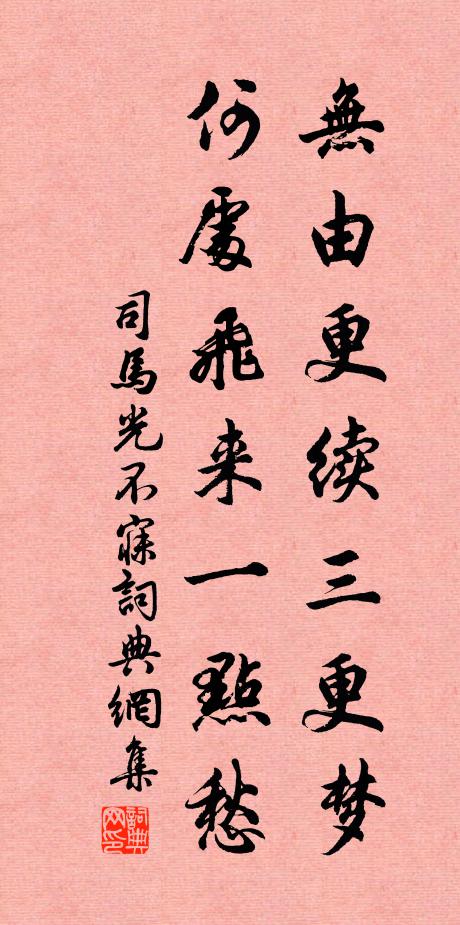 無由更续三更梦
何處飛来一點愁
司馬光不寐詞典網集
詞典
网印